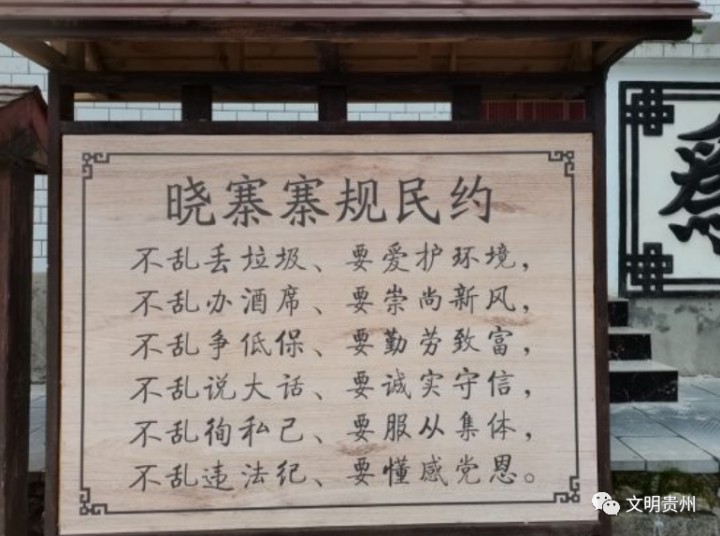 晓寨寨规民约
不乱丢垃圾、要爱护环境，
不乱办酒席、要崇尚新风，
不乱争低保、要勤劳致富，
不乱说大话、要诚实守信，
不乱徇私己、要服从集体，
不乱违法纪、要懂感党恩。
文明贵州